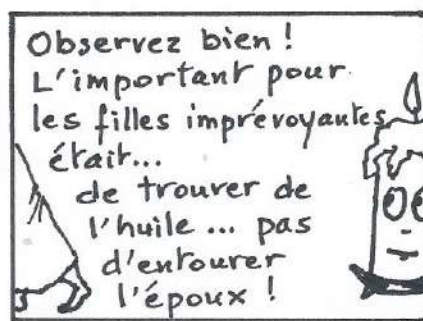 Observez bien !
L'important pour
les filles imprévoyantes
était...
de trouver de
l'huile ... pas
d'entourer
l'époux !